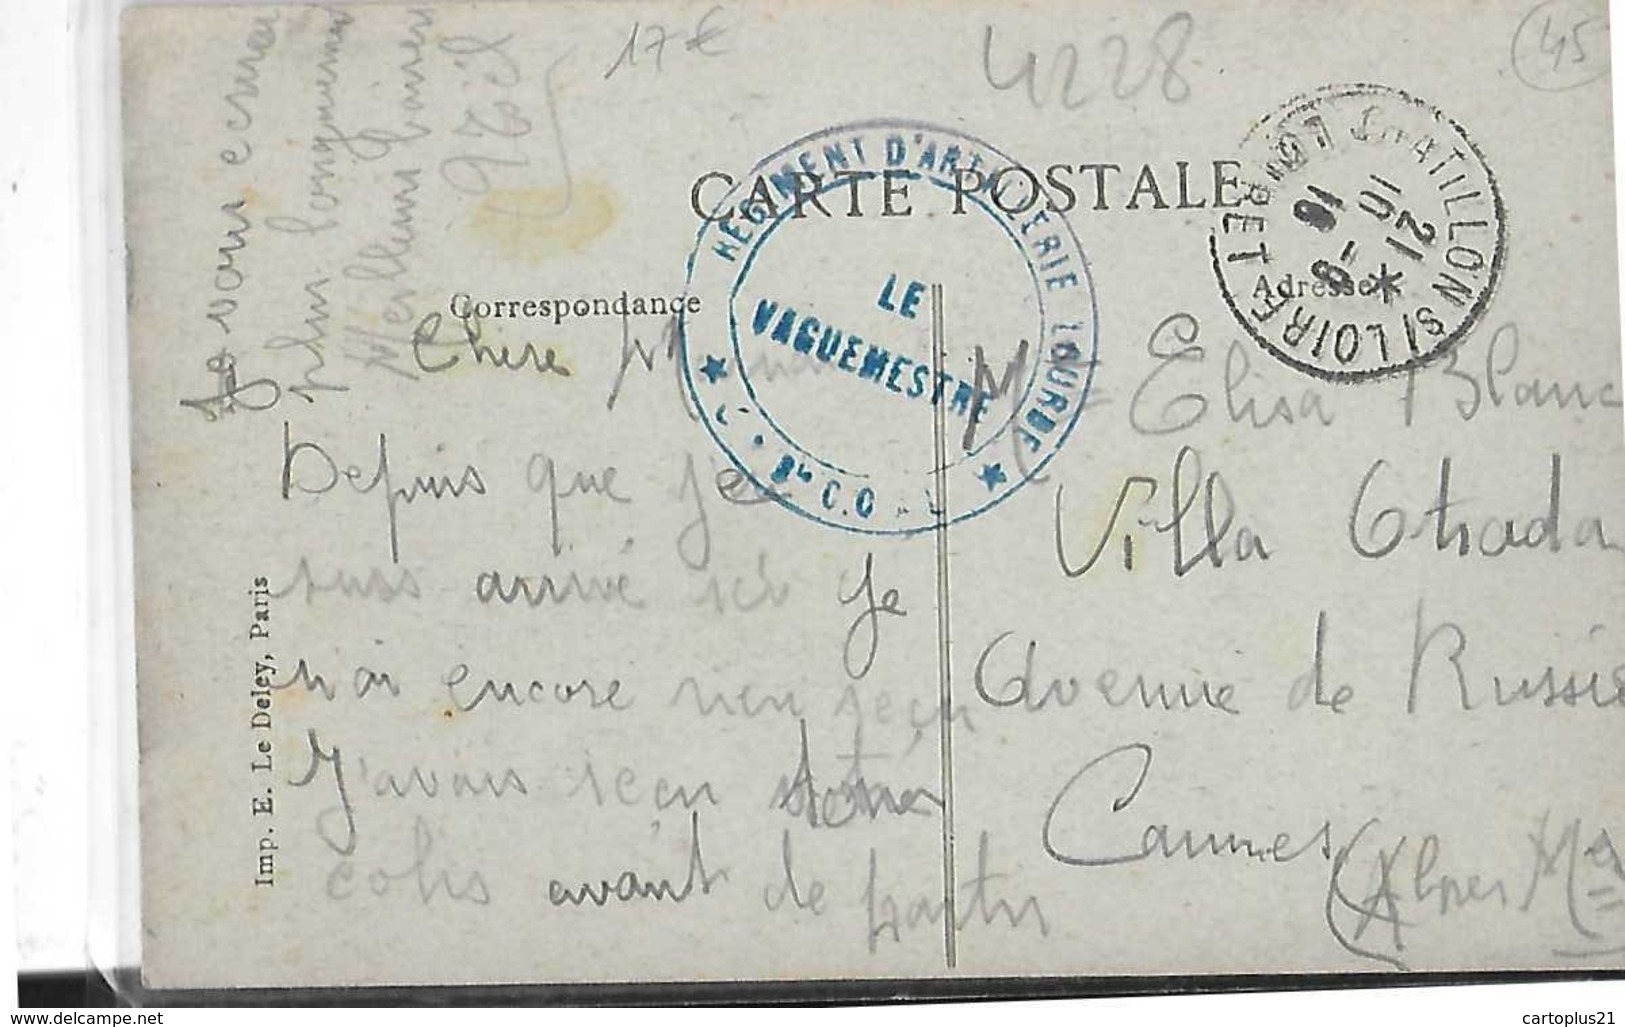 17 €
4228
45
Je vous ecrirai
plus longuement
Meilleurs baisers
CARTE POSTALE
RÉGIMENT D'ARTILLERIE LOURDE
LE
VAGUEMESTRE
CHATILLON S/ LOIRE
LOIRET
21
10
16
Correspondance
Adresse
Chère
Depuis que je
suis arrivé ici je
n'ai encore rien reçu
J'avais reçu
colis avant de partir
Elisa Blanc
Villa
Avenue de Russie
Cannes
(Alpes Mes
Imp. E. Le Deley, Paris
www.delcampe.net
cartoplus21